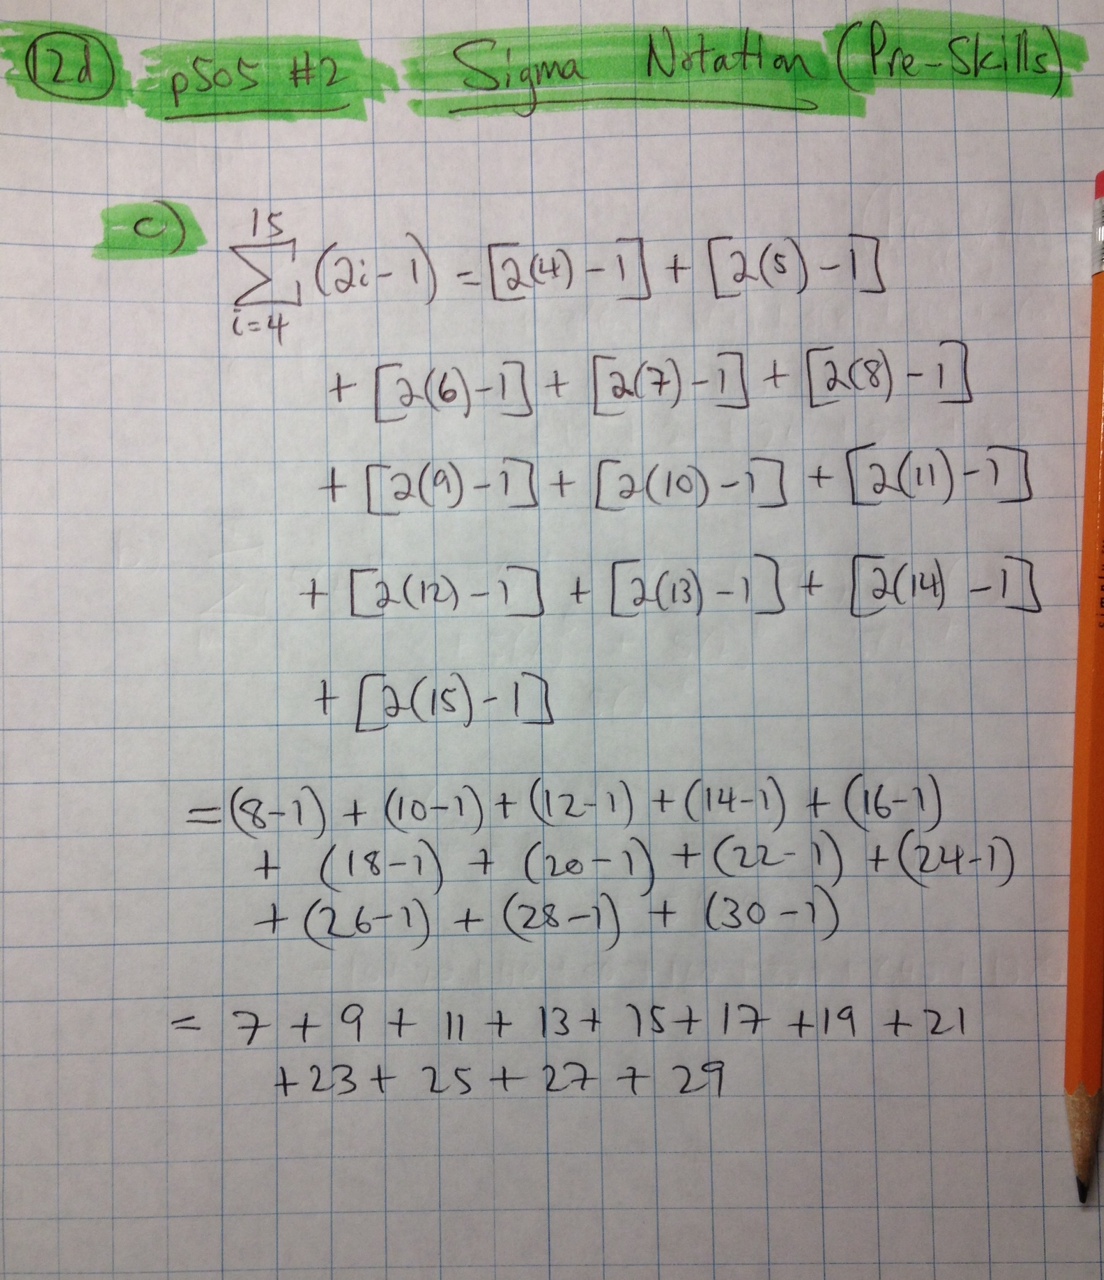 12d p505 #2 Sigma Notation (Pre-Skills)
c) 15
∑ (2i-1) = [2(4)-1] + [2(5)-1]
i=4
+ [2(6)-1] + [2(7)-1] + [2(8)-1]
+ [2(9)-1] + [2(10)-1] + [2(11)-1]
+ [2(12)-1] + [2(13)-1] + [2(14)-1]
+ [2(15)-1]
= (8-1) + (10-1) + (12-1) + (14-1) + (16-1)
+ (18-1) + (20-1) + (22-1) + (24-1)
+ (26-1) + (28-1) + (30-1)
= 7 + 9 + 11 + 13 + 15 + 17 + 19 + 21
+ 23 + 25 + 27 + 29